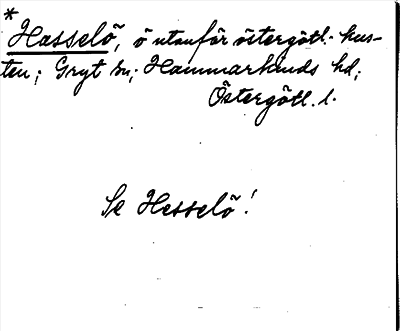 *
Hasselö, ö utanför östergötl. kus-
ten; Gryt sn; Hammarkinds hd;
Östergötl. l.
Se Hesselö!